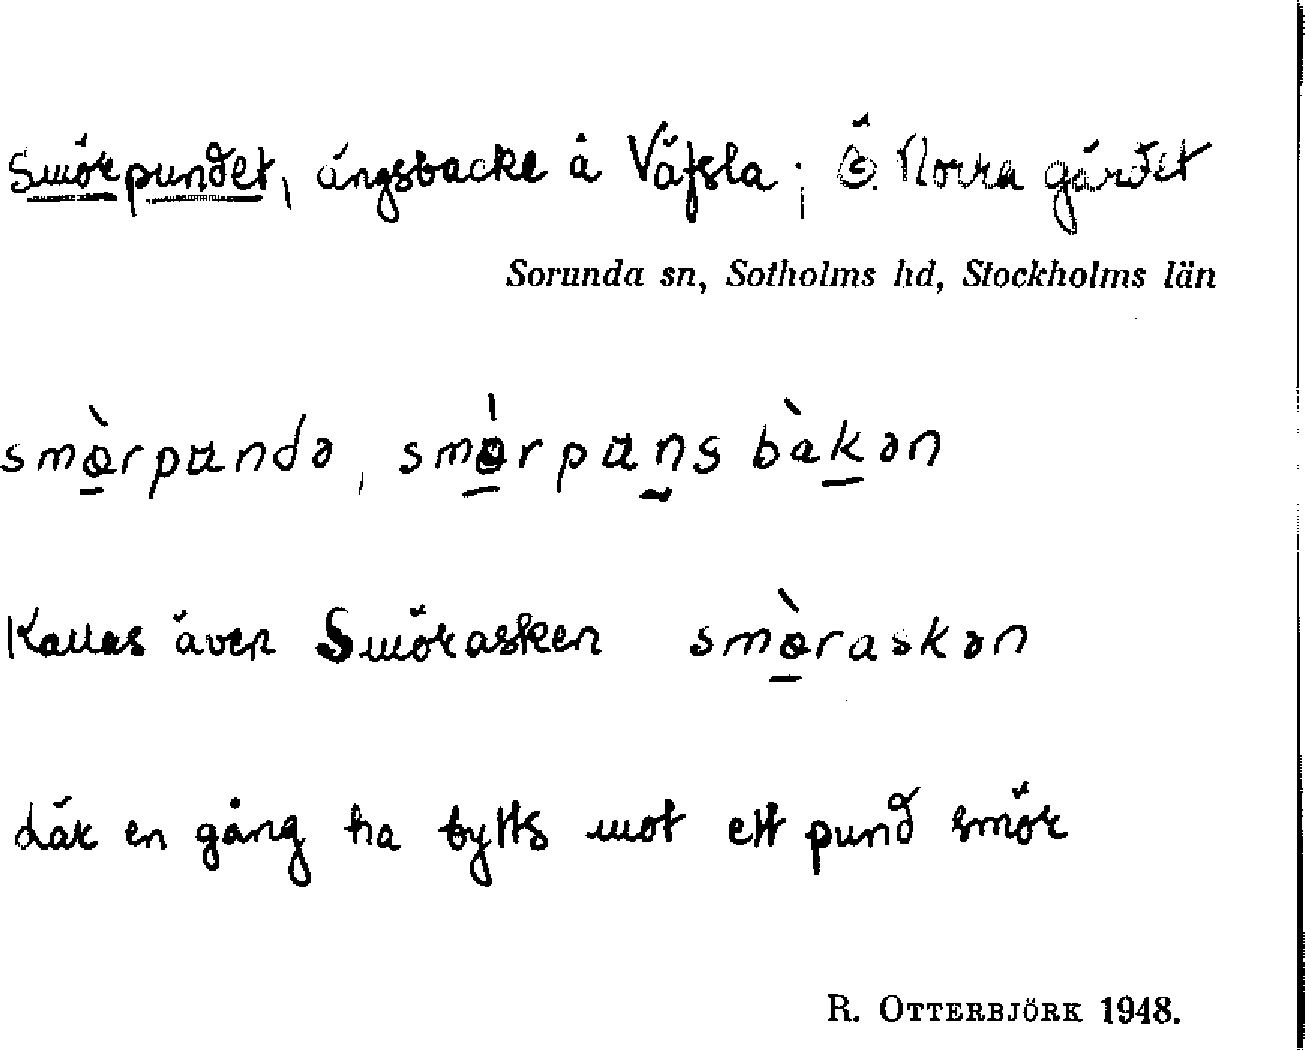 Smörpundet, ängsbacke å Väfsla; Ö. Norra gärdet
Sorunda sn, Sotholms hd, Stockholms län
smö̀rpundə, smö̀rpuns bàkən
Kallas även Smörasken smö̀raskən
Lär en gång ha bytts mot ett pund smör
R. OTTERBJÖRK 1948.